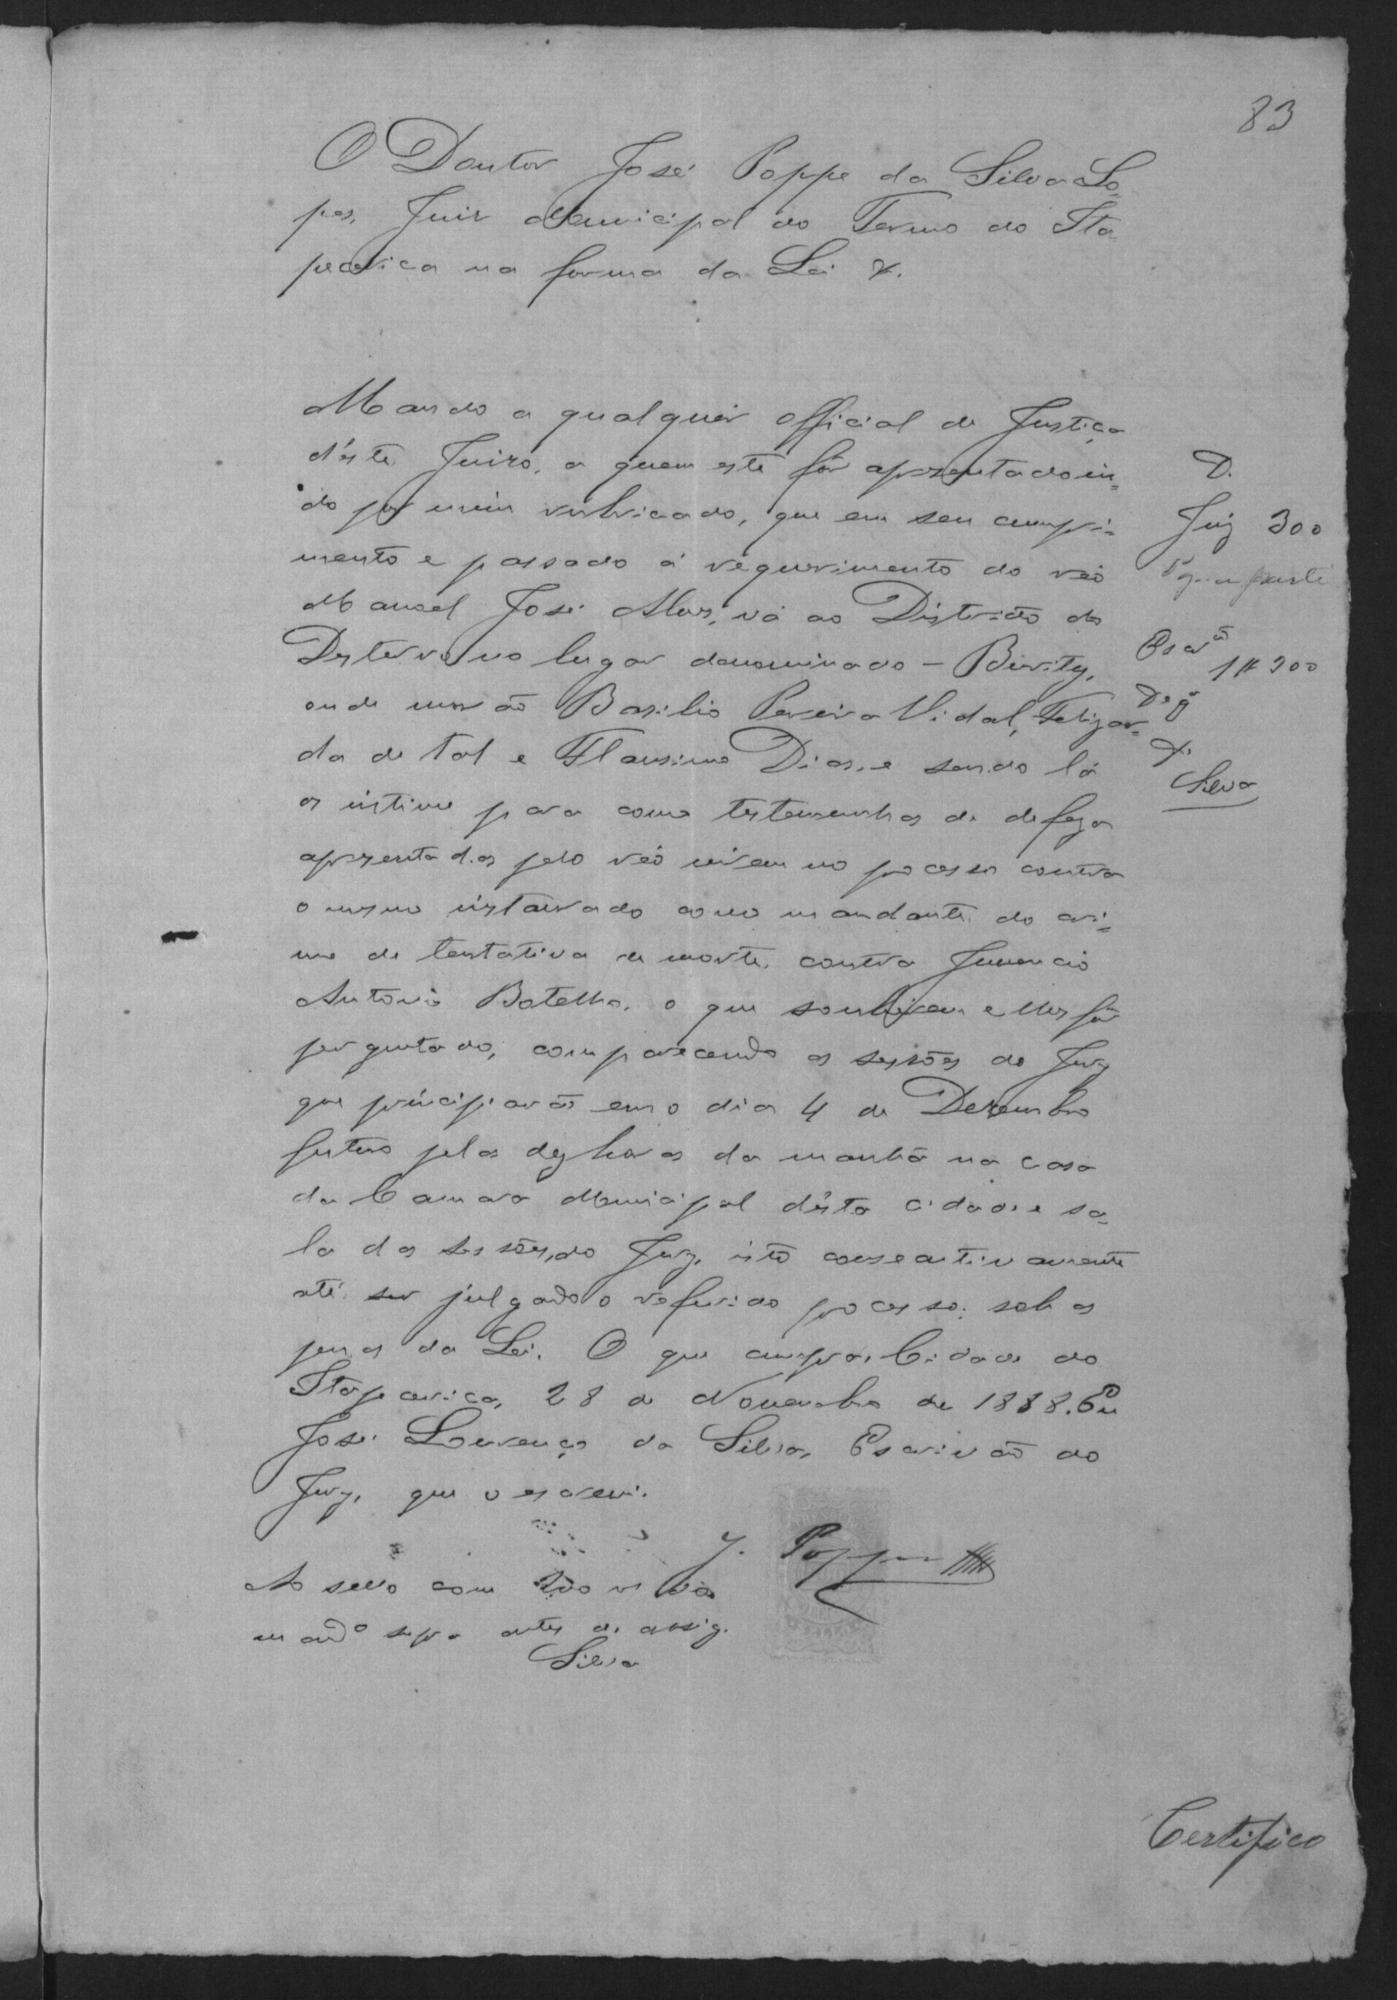 83
O Doutor José Poppe da Silva Lo-
pes, Juiz Municipal do Termo de Ita-
parica na forma da Lei &.
Mando a qualquer official de Justiça
d'éste Juizo, a quem este fôr aprezentado in-
do por mim rubricado, que em seu cumpri-
mento e passado á requerimento do réo
Manoel José Alves, vá ao Districto do
Desterro no lugar denominado — Burity,
onde morão Basilio Pereira Vidal, Felizar-
da de tal e Flausino Dias, e sendo lá
os intime para como testemunhas de defeza
aprezentadas pelo réo virem no processo contra
o mesmo instaurado como mandante do cri-
me de tentativa de morte contra Juvencio
Antonio Botelho, o que souberem e lhes fôr
perguntado, comparecendo as sessões do Jury
que principiarão em o dia 4 de Dezembro
futuro pelas dez horas da manhã na casa
da Camara Municipal d'ésta cidade e sa-
la das sessões do Jury, isto consecutivamente
até ser julgado o referido processo, sob as
penas da Lei. O que cumpra. Cidade de
Itaparica, 28 de Novembro de 1888. Eu
José Lourenço da Silva, Escrivão do
Jury, que o escrevi.
J. Poppe
D.
Juiz 300
parte
Escrᵃᵐ
1#300
Silva
Ao sello com 200 rs
mandº supra antes de assig.
Silva
Certifico